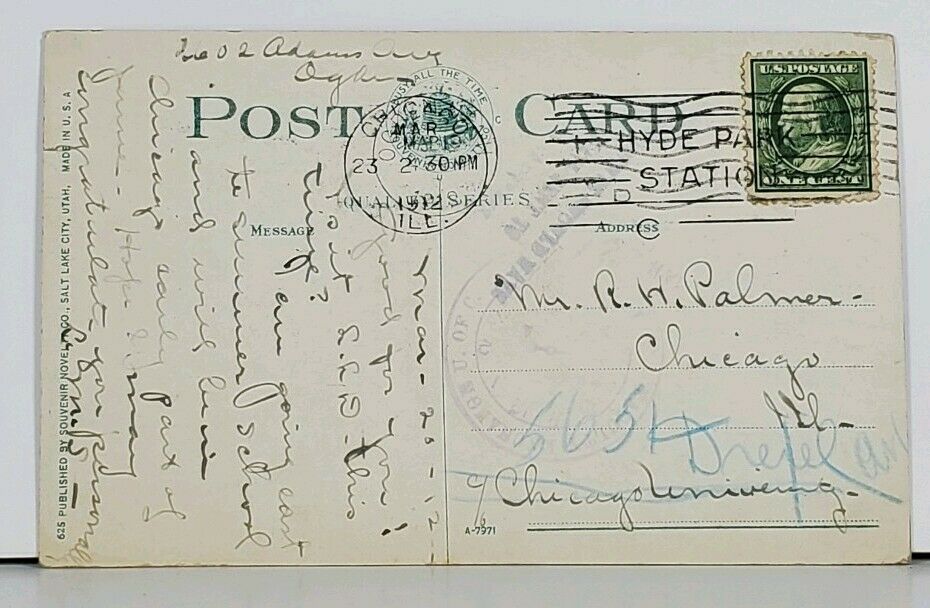 2602 Adams Ave
Ogden
POST CARD
ALL THE TIME
CHICAGO
MAR
MAR
23 2-30 PM
1912
ILL.
HYDE PARK
STATION
D
U.S. POSTAGE
ONE CENT
QUALITY SERIES
MESSAGE
ADDRESS
Mar-20-12-
Good for you!
is it Ph.D. this
time?
I am going east
to summer School
and will be in
Chicago early part of
June - Hope I may
congratulate you personally
Mr. R. H. Palmer-
Chicago
Ill.
5654 Drexel av
c/o Chicago University-
A-7971
625 PUBLISHED BY SOUVENIR NOVELTY CO., SALT LAKE CITY, UTAH, MADE IN U. S. A